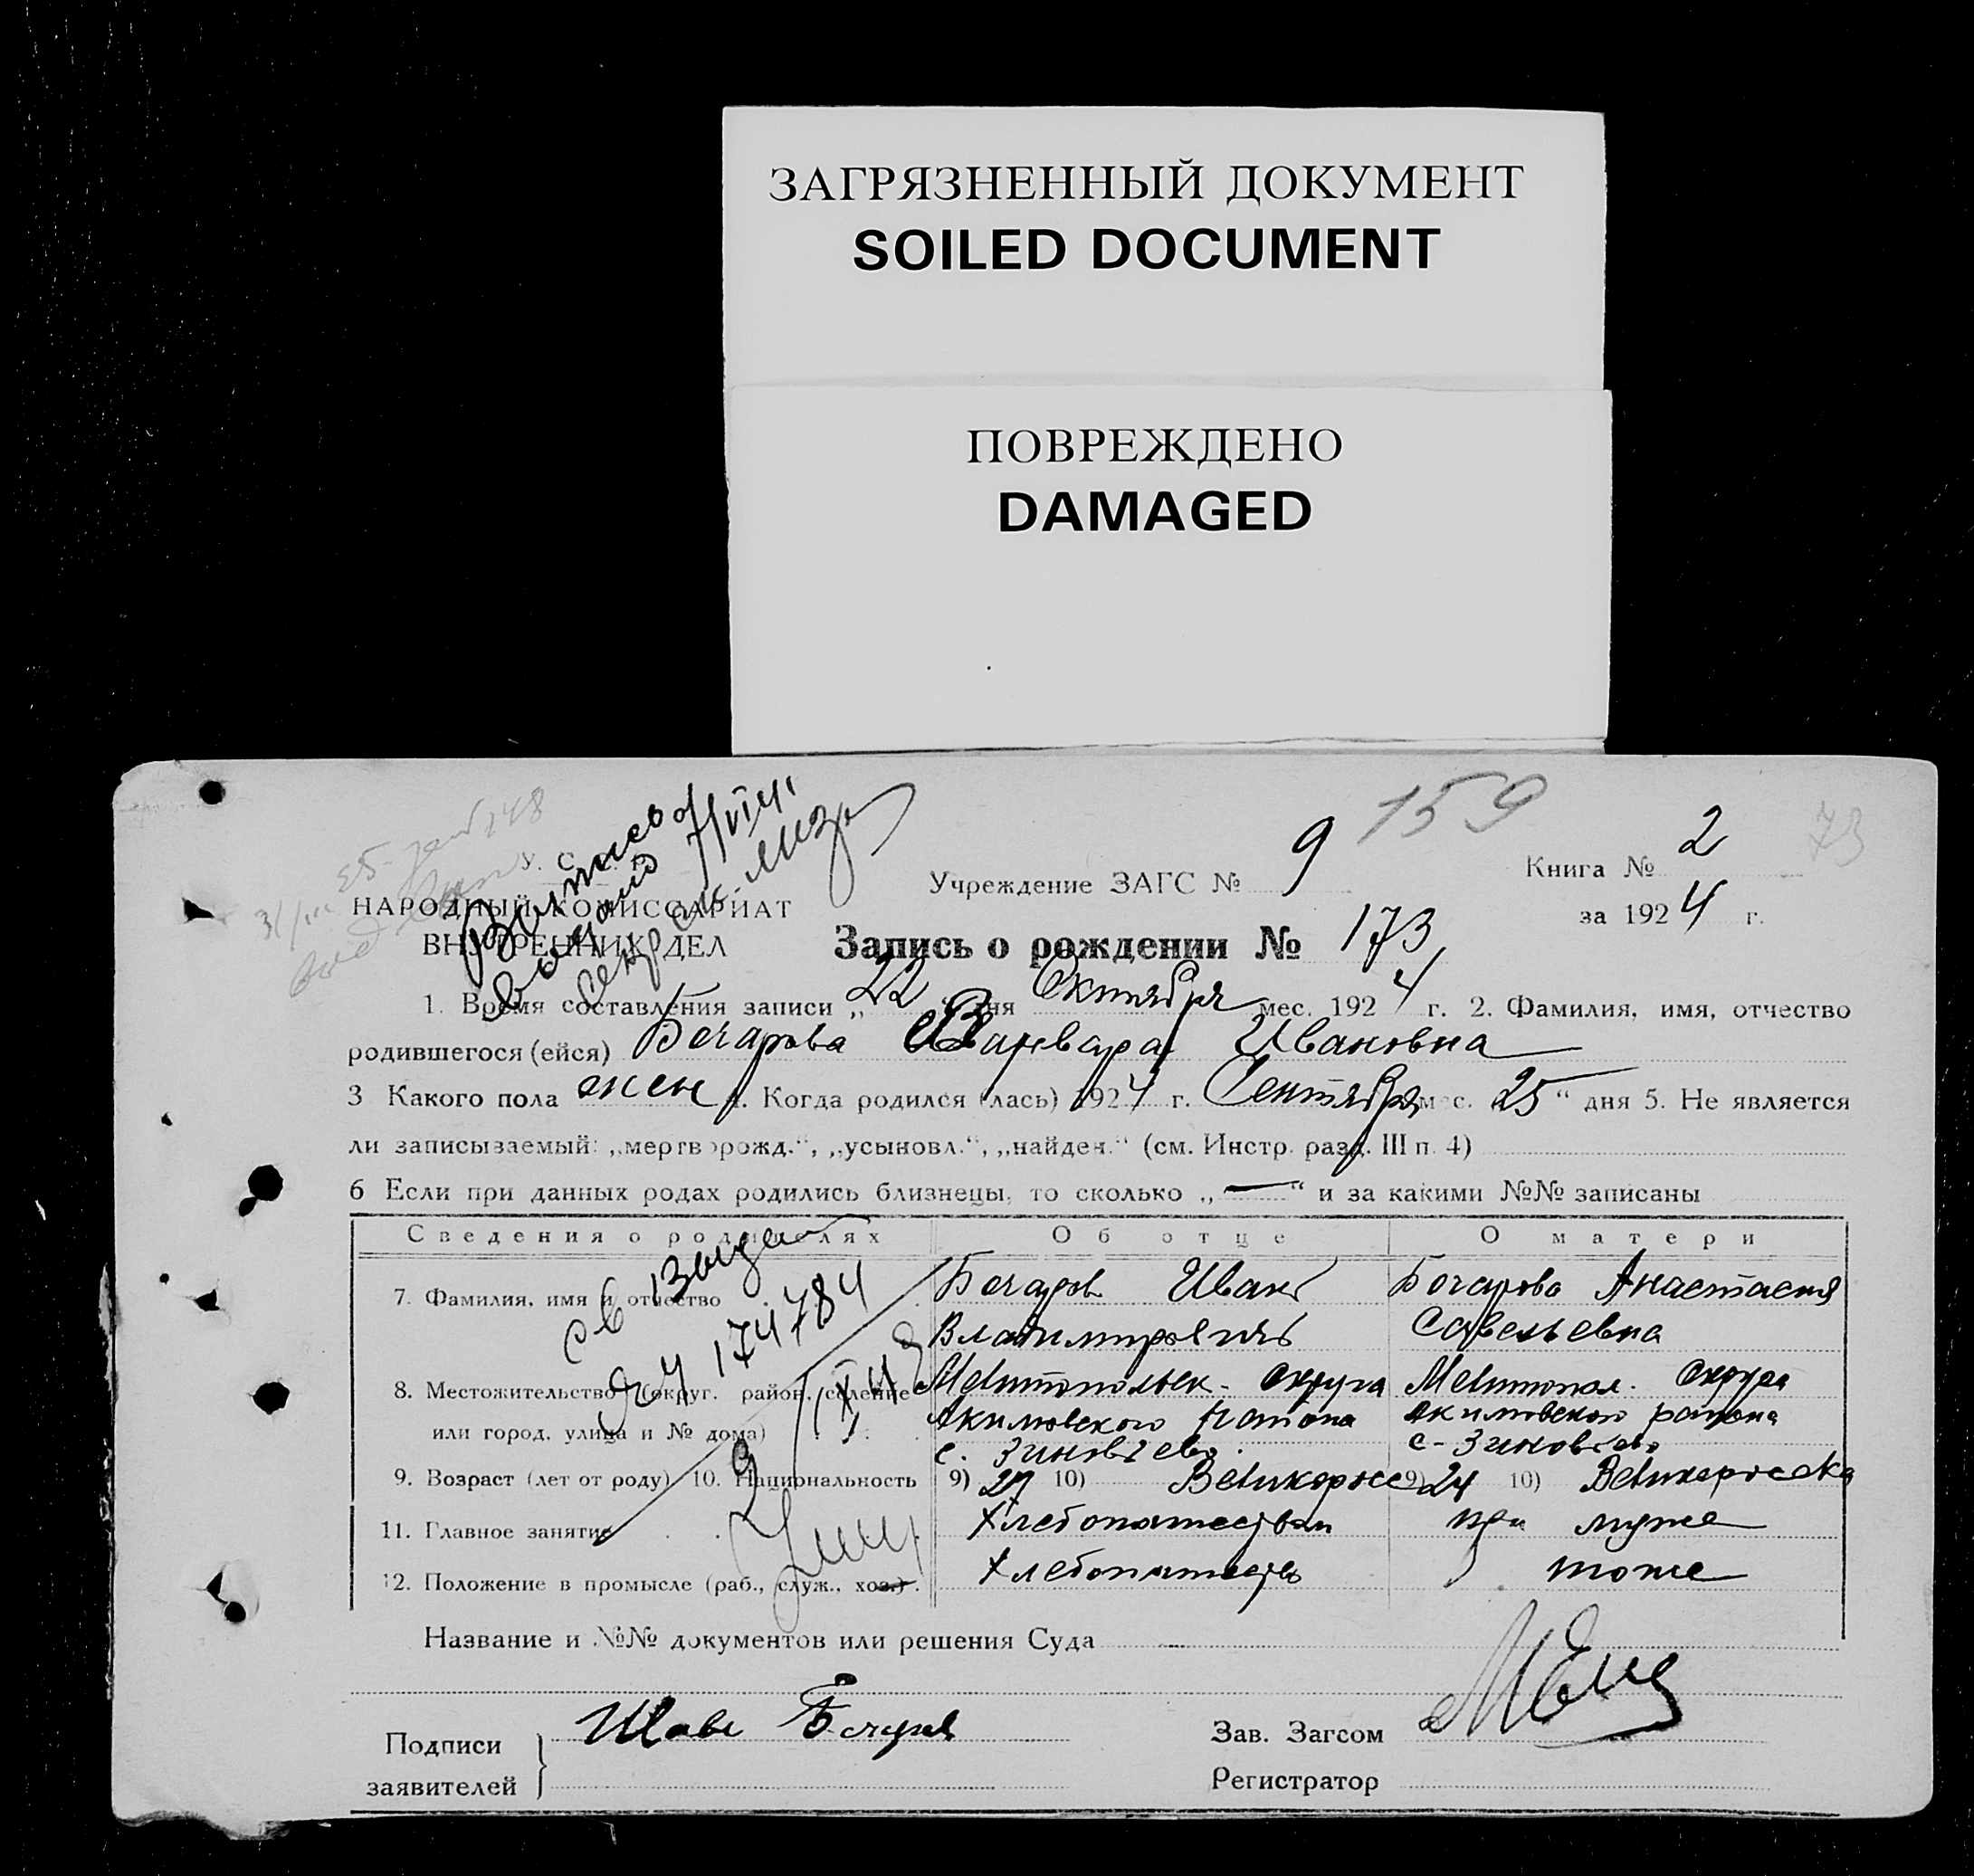 ЗАГРЯЗНЕННЫЙ ДОКУМЕНТ
SOILED DOCUMENT
ПОВРЕЖДЕНО
DAMAGED
159
73
У. С.
НАРОДНЫЙ КОМИССАРИАТ
ВНУТРЕННИХ ДЕЛ
Учреждение ЗАГС № 9
Книга № 2
за 1924 г.
Запись о рождении № 173
1. Время составления записи „22 дня Октября мес. 1924 г. 2. Фамилия, имя, отчество
родившегося (ейся) Бочарова Варвара Ивановна
3 Какого пола жен . Когда родился (лась) 1924 г. Сентября мес. 25“ дня 5. Не является
ли записываемый: „мертворожд.“, „усыновл.“, „найден.“ (см. Инстр. разд. III п. 4)
6 Если при данных родах родились близнецы, то сколько „—“ и за какими №№ записаны
Сведения о родителях Об отце О матери
7. Фамилия, имя и отчество Бочаров Иван Бочарова Анастасия
Владимирович Савельевна
8. Местожительство (округ. район, селение Мелитопольск. Округа Мелитопол. Округа
или город, улица и № дома) Акимовского района Акимовского района
с. Зиновьево. с-Зиновьево
9. Возраст (лет от роду) 10. Национальность 9) 27 10) Великоросс 9) 24 10) Великоросска
11. Главное занятие Хлебопашество при муже
12. Положение в промысле (раб., служ., хоз.) Хлебопашество тоже
св выдан
174784
Название и №№ документов или решения Суда
Подписи
заявителей
Зав. Загсом
Регистратор